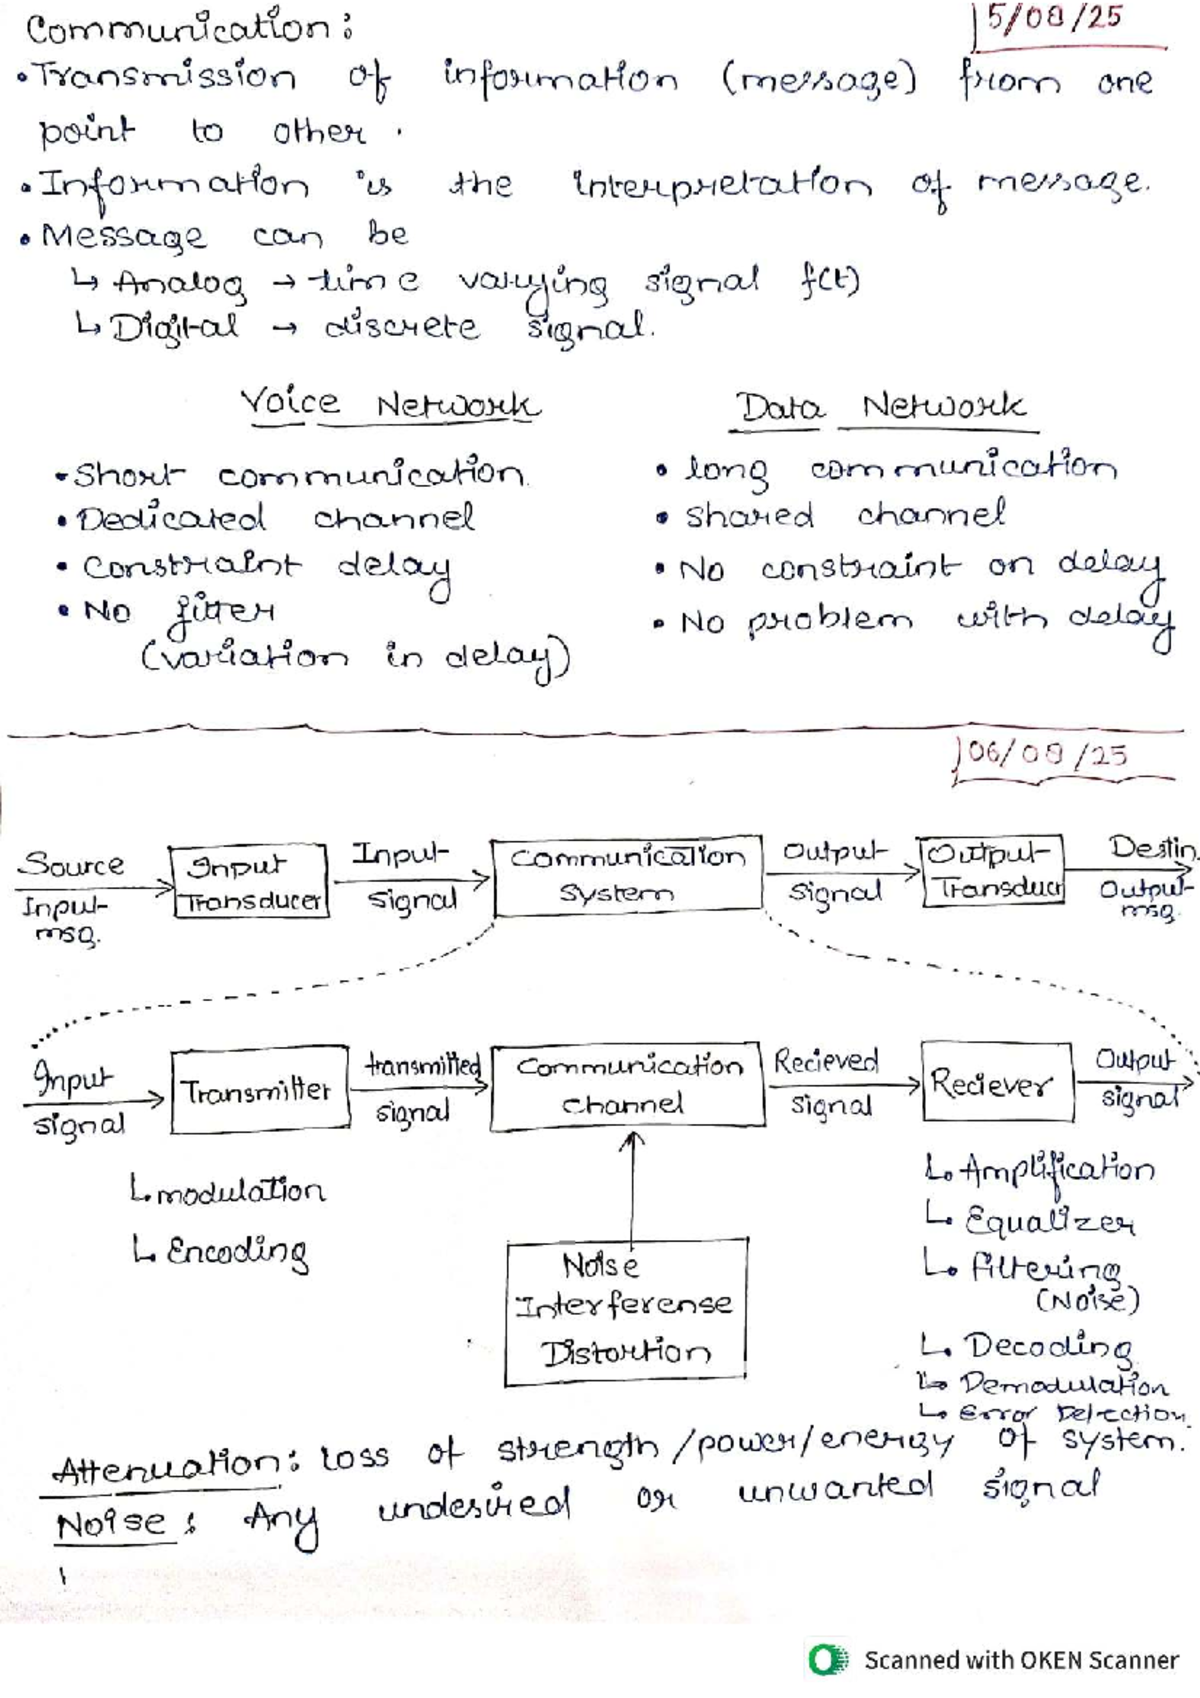 Communication:
5/08/25
• Transmission of information (message) from one
point to other.
• Information is the interpretation of message.
• Message can be
↳ Analog → time varying signal f(t)
↳ Digital → discrete signal.
Voice Network
Data Network
• Short communication.
• Dedicated channel
• Constraint delay
• No jitter
(variation in delay)
• long communication
• shared channel
• No constraint on delay
• No problem with delay
06/08/25
Source
Input-
msg.
Input
Transducer
Input-
signal
Communication
System
Output-
signal
Output-
Transducr
Destin.
Output-
msg.
Input
signal
Transmitter
transmitted
signal
Communication
channel
Recieved
signal
Reciever
Output
signal
↳ modulation
↳ Encoding
Noise
Interferense
Distortion
↳ Amplification
↳ Equalizer
↳ filtering
(Noise)
↳ Decoding
↳ Demodulation
↳ Error Detection.
Attenuation: Loss of strength/power/energy of system.
Noise: Any undesired or unwanted signal
Scanned with OKEN Scanner